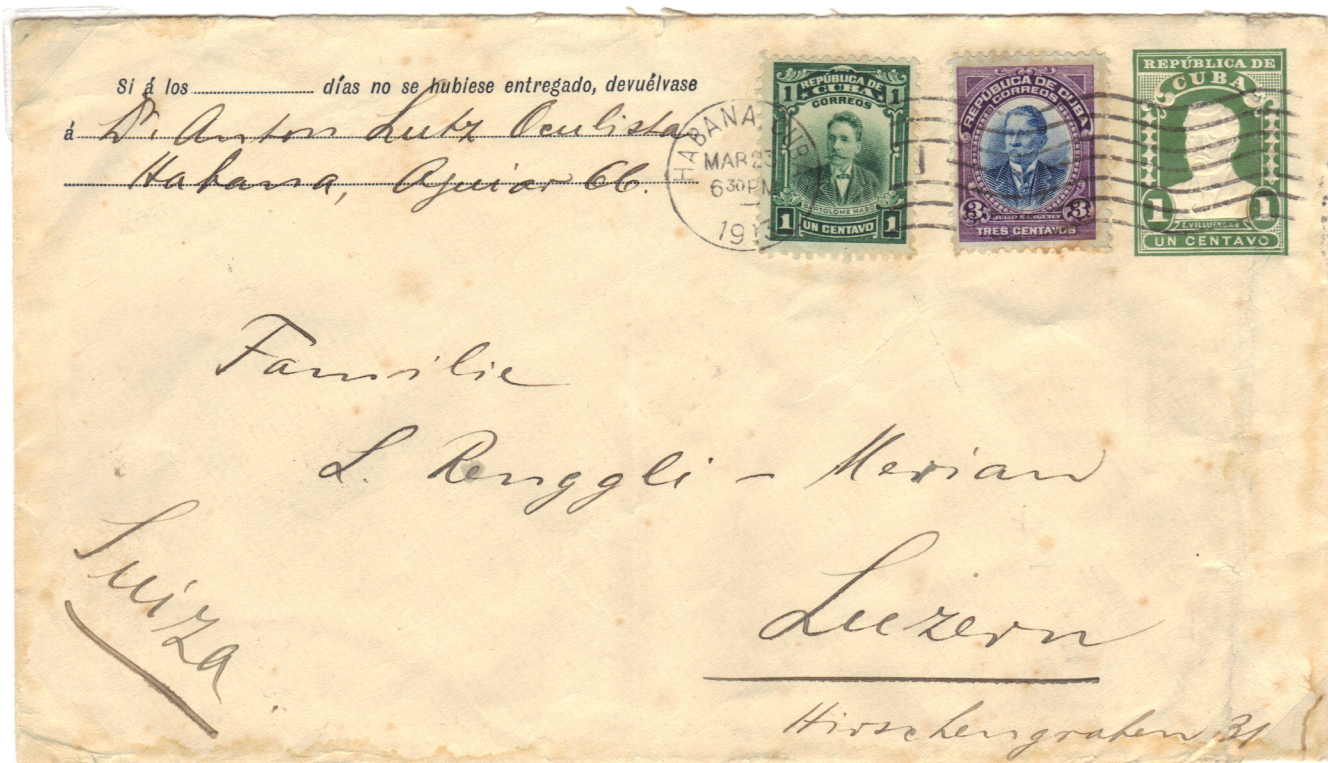 Si á los ............... días no se hubiese entregado, devuélvase
á Dr. Anton Lutz Oculista
Habana, Aguiar 66.
HABANA, CUBA
MAR 23
6 30 PM
REPÚBLICA DE
CUBA
CORREOS
1 1
BARTOLOME MASO
1 UN CENTAVO 1
REPÚBLICA DE CUBA
CORREOS
JULIO SANGUILY
3 3
TRES CENTAVOS
REPÚBLICA DE
CUBA
E. VILLUENDAS
1 1
UN CENTAVO
Familie
L. Renggli - Merian
Suiza
Luzern
Hirschengraben 31